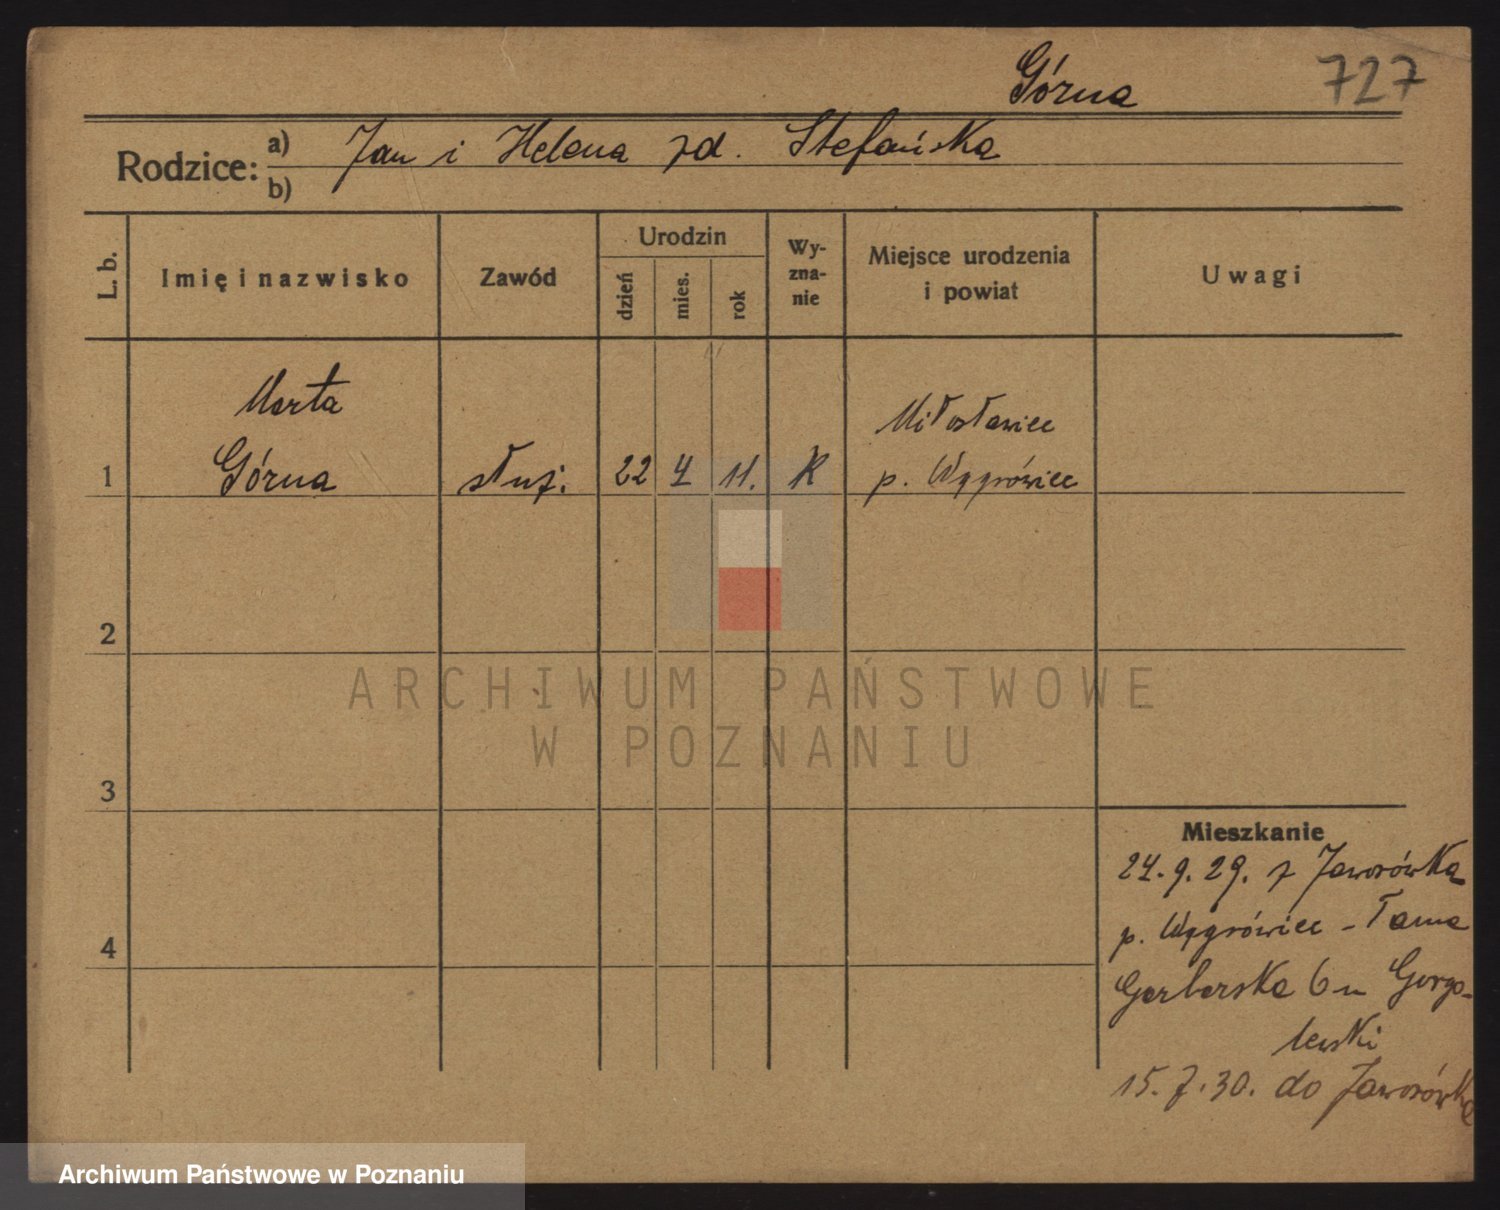 Górna 727
Rodzice: a) Jan i Helena zd. Stefańska
b)
L. b. Imię i nazwisko Zawód Urodzin dzień mies. rok Wy-zna-nie Miejsce urodzenia i powiat Uwagi
Marta Miłosławice
1 Górna służ. 22 4 11. K p. Wągrówiec
2
ARCHIWUM PAŃSTWOWE
W POZNANIU
3
Mieszkanie
24.9.29. z Jaworówka
p. Wągrówiec - Tama
4
Garbarska 6 u Gorgo-
lewski
15.7.30. do Jaworówka
Archiwum Państwowe w Poznaniu